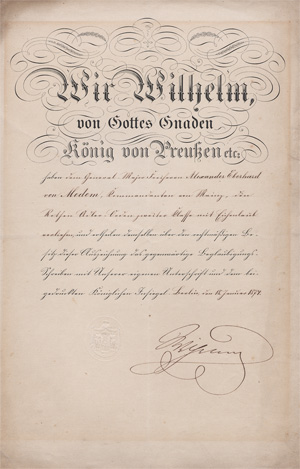 Wir Wilhelm,
von Gottes Gnaden
König von Preußen etc:
haben dem General-Major Freiherrn Alexander Eberhard
von Medem, Kommandanten von Mainz, den
Rothen Adler-Orden zweiter Klasse mit Eichenlaub
verliehen, und ertheilen demselben über den rechtmäßigen Be-
sitz dieser Auszeichnung das gegenwärtige Beglaubigungs-
Schreiben mit Unserer eigenen Unterschrift und dem bei-
gedruckten Königlichen Insiegel. Berlin, den 18 Januar
Wilhelm